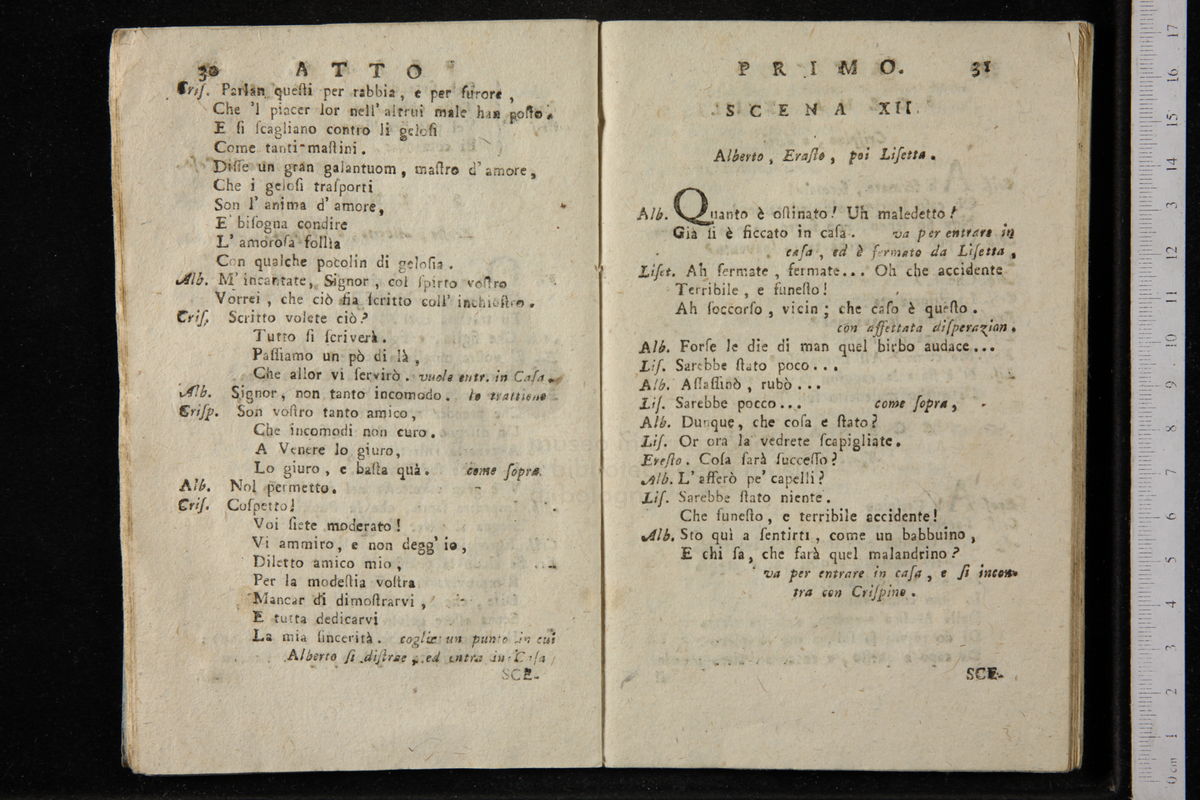 30 ATTO
Cris. Parlan questi per rabbia, e per furore,
Che 'l piacer lor nell' altrui male han posto.
E si scagliano contro li gelosi
Come tanti mastini.
Disse un gran galantuom, mastro d' amore,
Che i gelosi trasporti
Son l' anima d' amore,
E bisogna condire
L' amorosa follìa
Con qualche pocolin di gelosia.
Alb. M' incantate, Signor, col spirto vostro
Vorrei, che ciò sia scritto coll' inchiostro.
Cris. Scritto volete ciò?
Tutto si scriverà.
Passiamo un pò di là,
Che allor vi servirò. vuole entr. in Casa.
Alb. Signor, non tanto incomodo. lo trattiene
Crisp. Son vostro tanto amico,
Che incomodi non curo.
A Venere lo giuro,
Lo giuro, e basta quà. come sopra.
Alb. Nol permetto.
Cris. Cospetto!
Voi siete moderato!
Vi ammiro, e non degg' io,
Diletto amico mio,
Per la modestia vostra
Mancar di dimostrarvi,
E tutta dedicarvi
La mia sincerità. coglie un punto in cui
Alberto si distrae, ed entra in Casa
SCE-
PRIMO. 31
SCENA XII.
Alberto, Erasto, poi Lisetta.
Alb. Quanto è ostinato! Uh maledetto!
Già si è ficcato in casa. va per entrare in
casa, ed è fermato da Lisetta,
Liset. Ah fermate, fermate... Oh che accidente
Terribile, e funesto!
Ah soccorso, vicin; che caso è questo.
con affettata disperazion.
Alb. Forse le die di man quel birbo audace...
Lis. Sarebbe stato poco...
Alb. Assassinò, rubò...
Lis. Sarebbe pocco... come sopra,
Alb. Dunque, che cosa e stato?
Lis. Or ora la vedrete scapigliate.
Eresto. Cosa sarà successo?
Alb. L' afferò pe' capelli?
Lis. Sarebbe stato niente.
Che funesto, e terribile accidente!
Alb. Sto quì a sentirti, come un babbuino,
E chi sa, che farà quel malandrino?
va per entrare in casa, e si incon-
tra con Crispino.
SCE-
17
16
15
14
13
12
11
10
9
8
7
6
5
4
3
2
1
0 cm